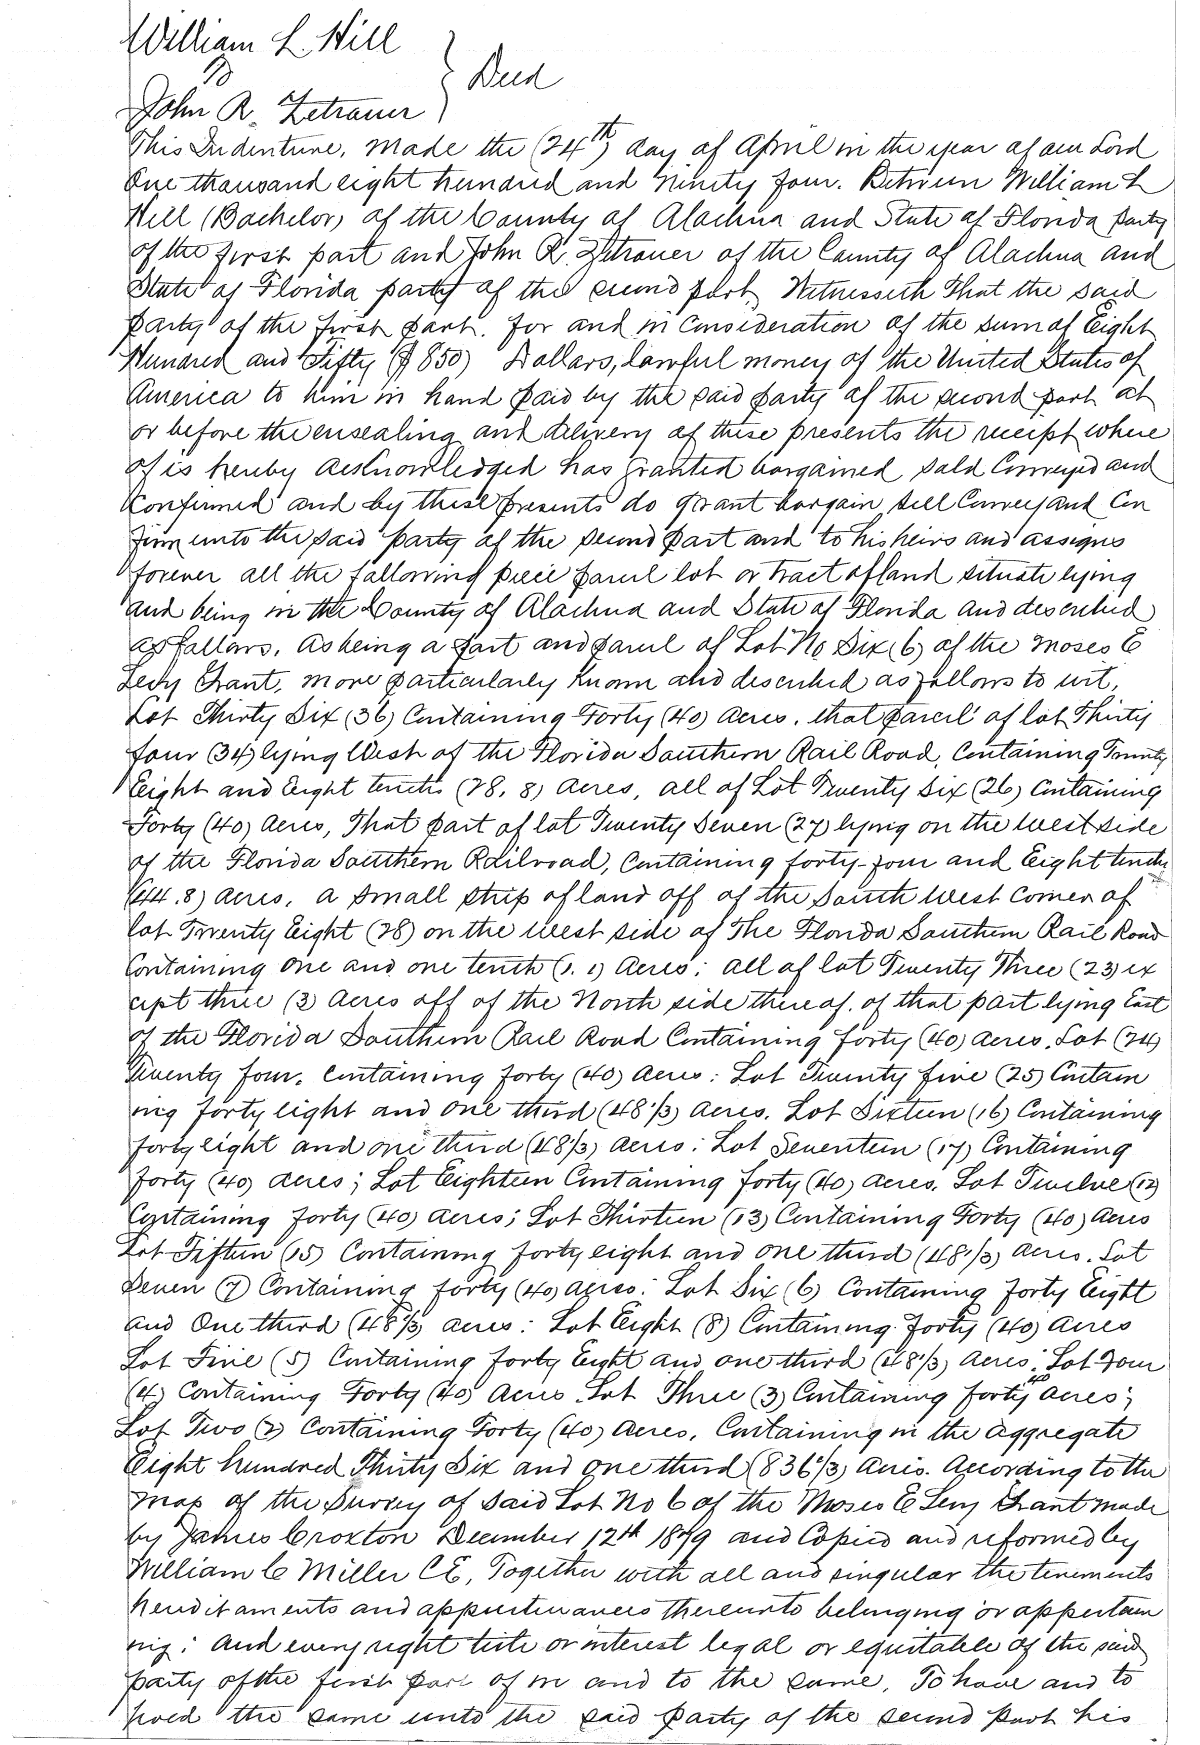 William L Hill
to } Deed
John R. Zetrouer
This Indenture, Made the (24th) day of April in the year of our Lord
One thousand eight hundred and Ninety four. Between William L
Hill (Bachelor) of the County of Alachua and State of Florida party
of the first part and John R. Zetrouer of the County of Alachua and
State of Florida party of the second part, Witnesseth That the said
party of the first part. for and in Consideration of the sum of Eight
Hundred and Fifty ($850) Dollars, lawful money of the United States of
America to him in hand paid by the said party of the second part at
or before the ensealing and delivery of these presents the receipt where
of is hereby acknowledged has granted bargained sold Conveyed and
Confirmed and by these presents do grant bargain, sell Convey and Con
firm unto the said party of the second part and to his heirs and assigns
forever all the following piece parcel lot or tract of land situate lying
and being in the County of Alachua and State of Florida and described
as follows, As being a part and parcel of Lot No Six (6) of the Moses E
Levy Grant, more particularly known and described as follows to wit,
Lot Thirty Six (36) Containing Forty (40) Acres. that parcel of lot Thirty
four (34) lying West of the Florida Southern Rail Road, Containing Twenty
Eight and Eight tenths (28.8) Acres, all of Lot Twenty Six (26) Containing
Forty (40) Acres, That part of lot Twenty Seven (27) lying on the West side
of the Florida Southern Railroad, Containing forty-four and Eight tenths
(44.8) acres, a small strip of land off of the South West Corner of
lot Twenty Eight (28) on the West side of The Florida Southern Rail Road
Containing One and one tenth (1.1) Acres; all of lot Twenty Three (23) ex
cept three (3) Acres off of the North side thereof, of that part lying East
of the Florida Southern Rail Road Containing forty (40) Acres. Lot (24)
Twenty four, Containing forty (40) Acres: Lot Twenty five (25) Contain
ing forty eight and one third (48 1/3) Acres. Lot Sixteen (16) Containing
forty eight and one third (48 1/3) Acres: Lot Seventeen (17) Containing
forty (40) Acres; Lot Eighteen Containing forty (40) Acres. Lot Twelve (12)
Containing forty (40) Acres; Lot Thirteen (13) Containing Forty (40) Acres
Lot Fifteen (15) Containing forty eight and one third (48 1/3) Acres. Lot
Seven (7) Containing forty (40) Acres: Lot Six (6) Containing forty Eight
and One third (48 1/3) acres: Lot Eight (8) Containing forty (40) Acres
Lot Five (5) Containing forty Eight and one third (48 1/3) Acres; Lot Four
(4) Containing Forty (40) Acres Lot Three (3) Containing forty 40 acres;
Lot Two (2) Containing Forty (40) Acres, Containing in the aggregate
Eight hundred Thirty Six and one third (836 1/3) Acres. According to the
map of the Survey of said Lot No 6 of the Moses E Levy Grant made
by James Croxton December 12th 1879 and Copied and reformed by
William C Miller C E, Together with all and singular the tenements
hereditaments and appurtenances thereunto belonging or appertain
ing: And every right title or interest legal or equitable of the said
party of the first part of in and to the same, To have and to
hold the same unto the said party of the second part his